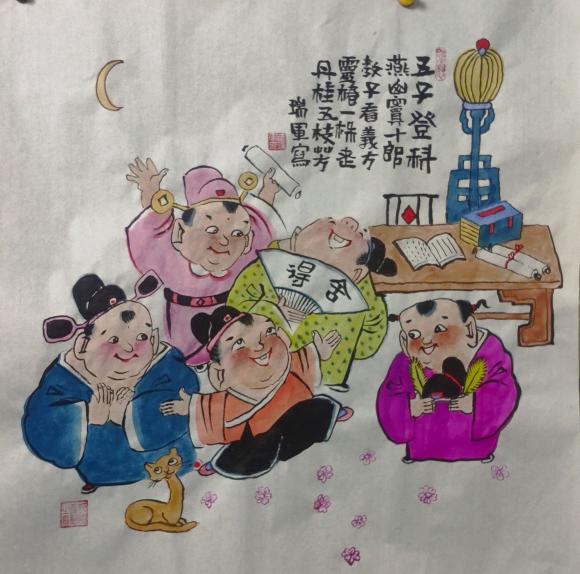 五子登科
燕山竇十郎
教子有義方
靈椿一株老
丹桂五枝芳
瑞軍寫
舍得